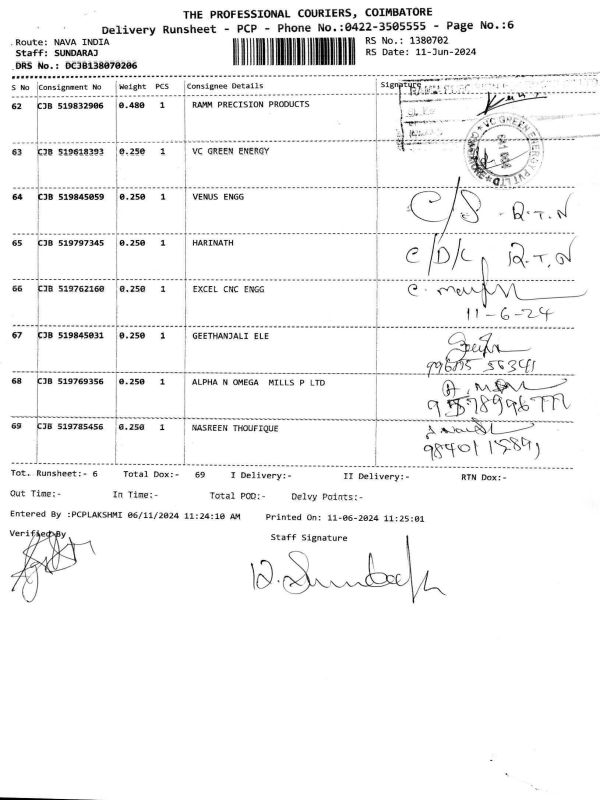 THE PROFESSIONAL COURIERS, COIMBATORE
Delivery Runsheet - PCP - Phone No.:0422-3505555 - Page No.:6
Route: NAVA INDIA
RS No.: 1380702
Staff: SUNDARAJ
RS Date: 11-Jun-2024
DRS No.: DCJB138070206
S No Consignment No Weight PCS Consignee Details Signature
62 CJB 519832906 0.480 1 RAMM PRECISION PRODUCTS
63 CJB 519618393 0.250 1 VC GREEN ENERGY
VC GREEN ENERGY PVT LTD
64 CJB 519845059 0.250 1 VENUS ENGG C/S R.T.N
65 CJB 519797345 0.250 1 HARINATH C/D/L R.T.N
66 CJB 519762160 0.250 1 EXCEL CNC ENGG
11-6-24
67 CJB 519845031 0.250 1 GEETHANJALI ELE
68 CJB 519769356 0.250 1 ALPHA N OMEGA MILLS P LTD
69 CJB 519785456 0.250 1 NASREEN THOUFIQUE
Tot. Runsheet:- 6 Total Dox:- 69 I Delivery:- II Delivery:- RTN Dox:-
Out Time:- In Time:- Total POD:- Delvy Points:-
Entered By :PCPLAKSHMI 06/11/2024 11:24:10 AM Printed On: 11-06-2024 11:25:01
Verified By Staff Signature